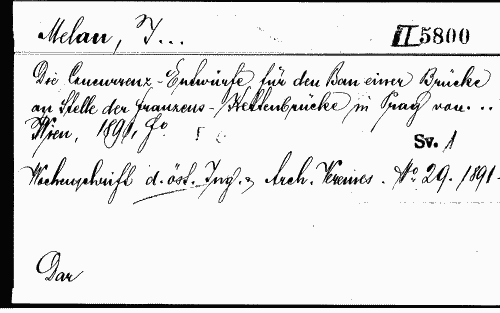 Melan, J... II 5800
Die Concurrenz-Entwürfe für den Bau einer Brücke
an Stelle der Franzens-Kettenbrücke in Prag von...
Wien, 1891, Fo
Sv. 1
Wochenschrift d. öst. Ing. & Arch. Vereines. No. 29. 1891.
Dar